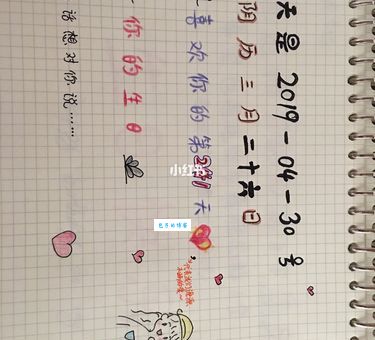 天是2019-04-30号
阴历三月二十六日
喜欢你的第
天
你的生日
话想对你说……
小红书